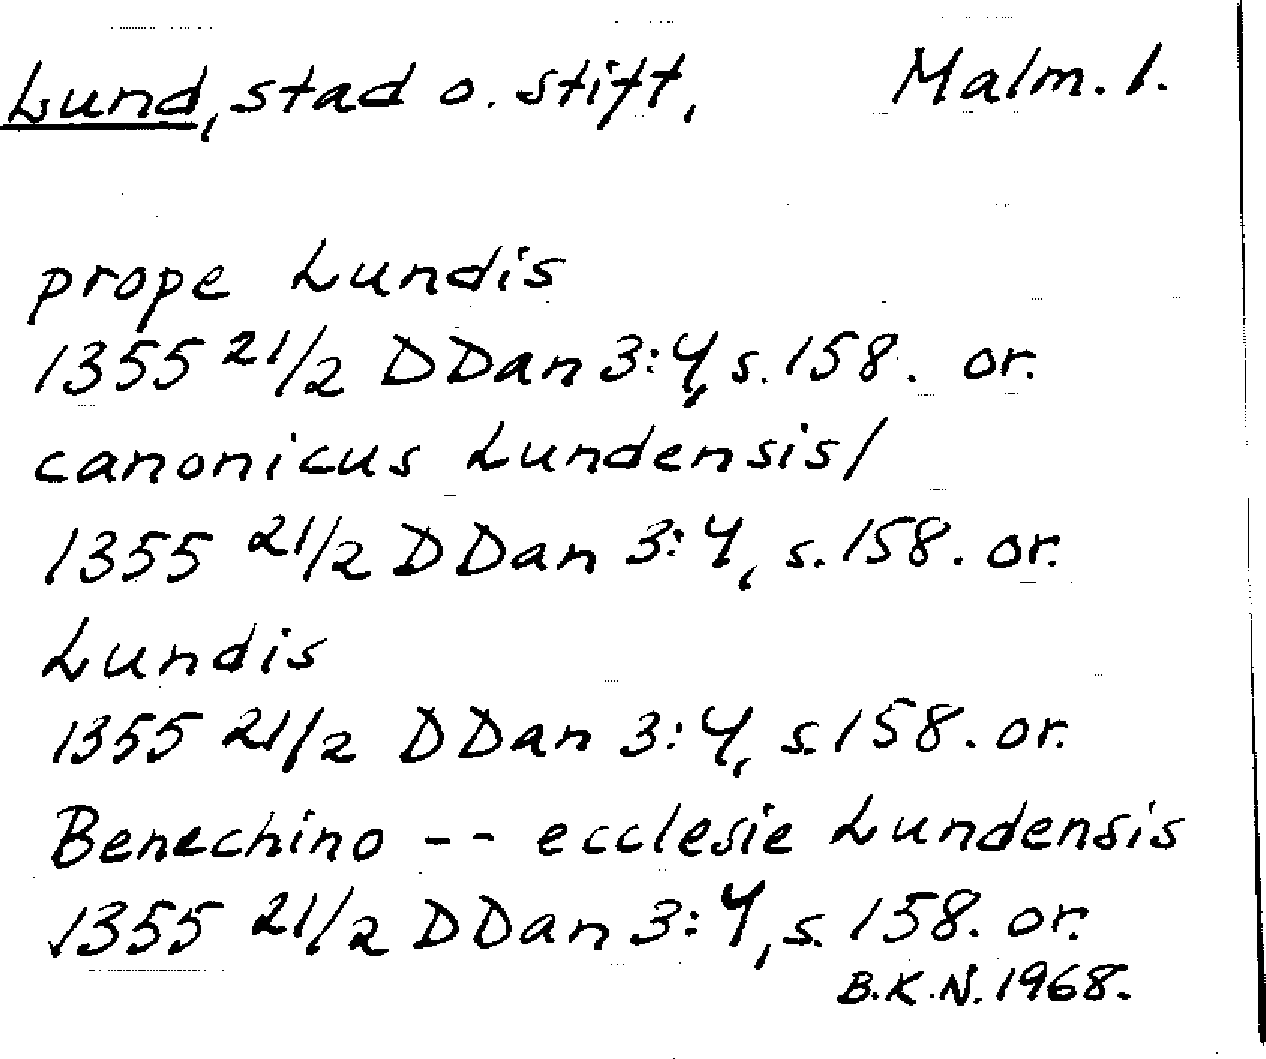 Lund, stad o. stift, Malm. l.
prope Lundis
1355 21/2 DDan 3:4, s. 158. or.
canonicus Lundensis/
1355 21/2 DDan 3:4, s. 158. or.
Lundis
1355 21/2 DDan 3:4, s. 158. or.
Benechino -- ecclesie Lundensis
1355 21/2 DDan 3:4, s. 158. or.
B.K.N. 1968.